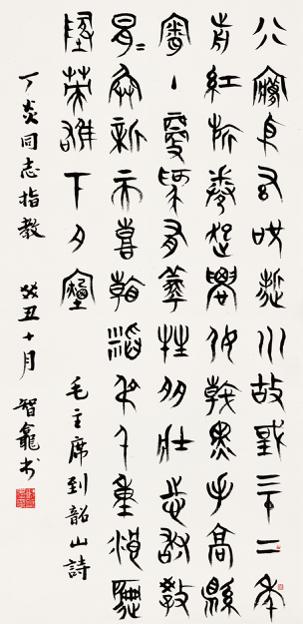 八夢依希呪逝川故國三十二年
前紅旂卷起農奴戟黑手高縣
霸主鞭爲有犧牲多壯志敢教
日月奐新天喜看稻尗千重浪遍
地英雄下夕煙 毛主席到韶山詩
丁炎同志指教 癸丑十月 智龕书